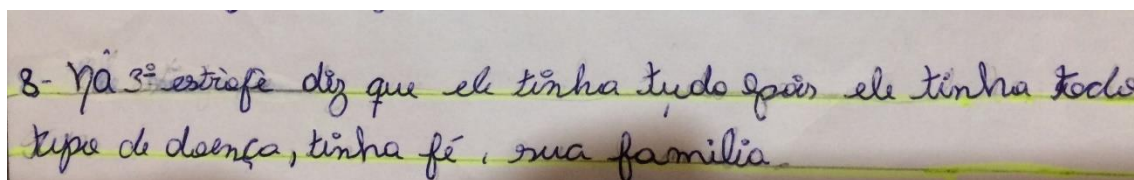 8- Na 3º estrofe diz que ele tinha tudo pois ele tinha todo
tipo de doença, tinha fé, sua familia.